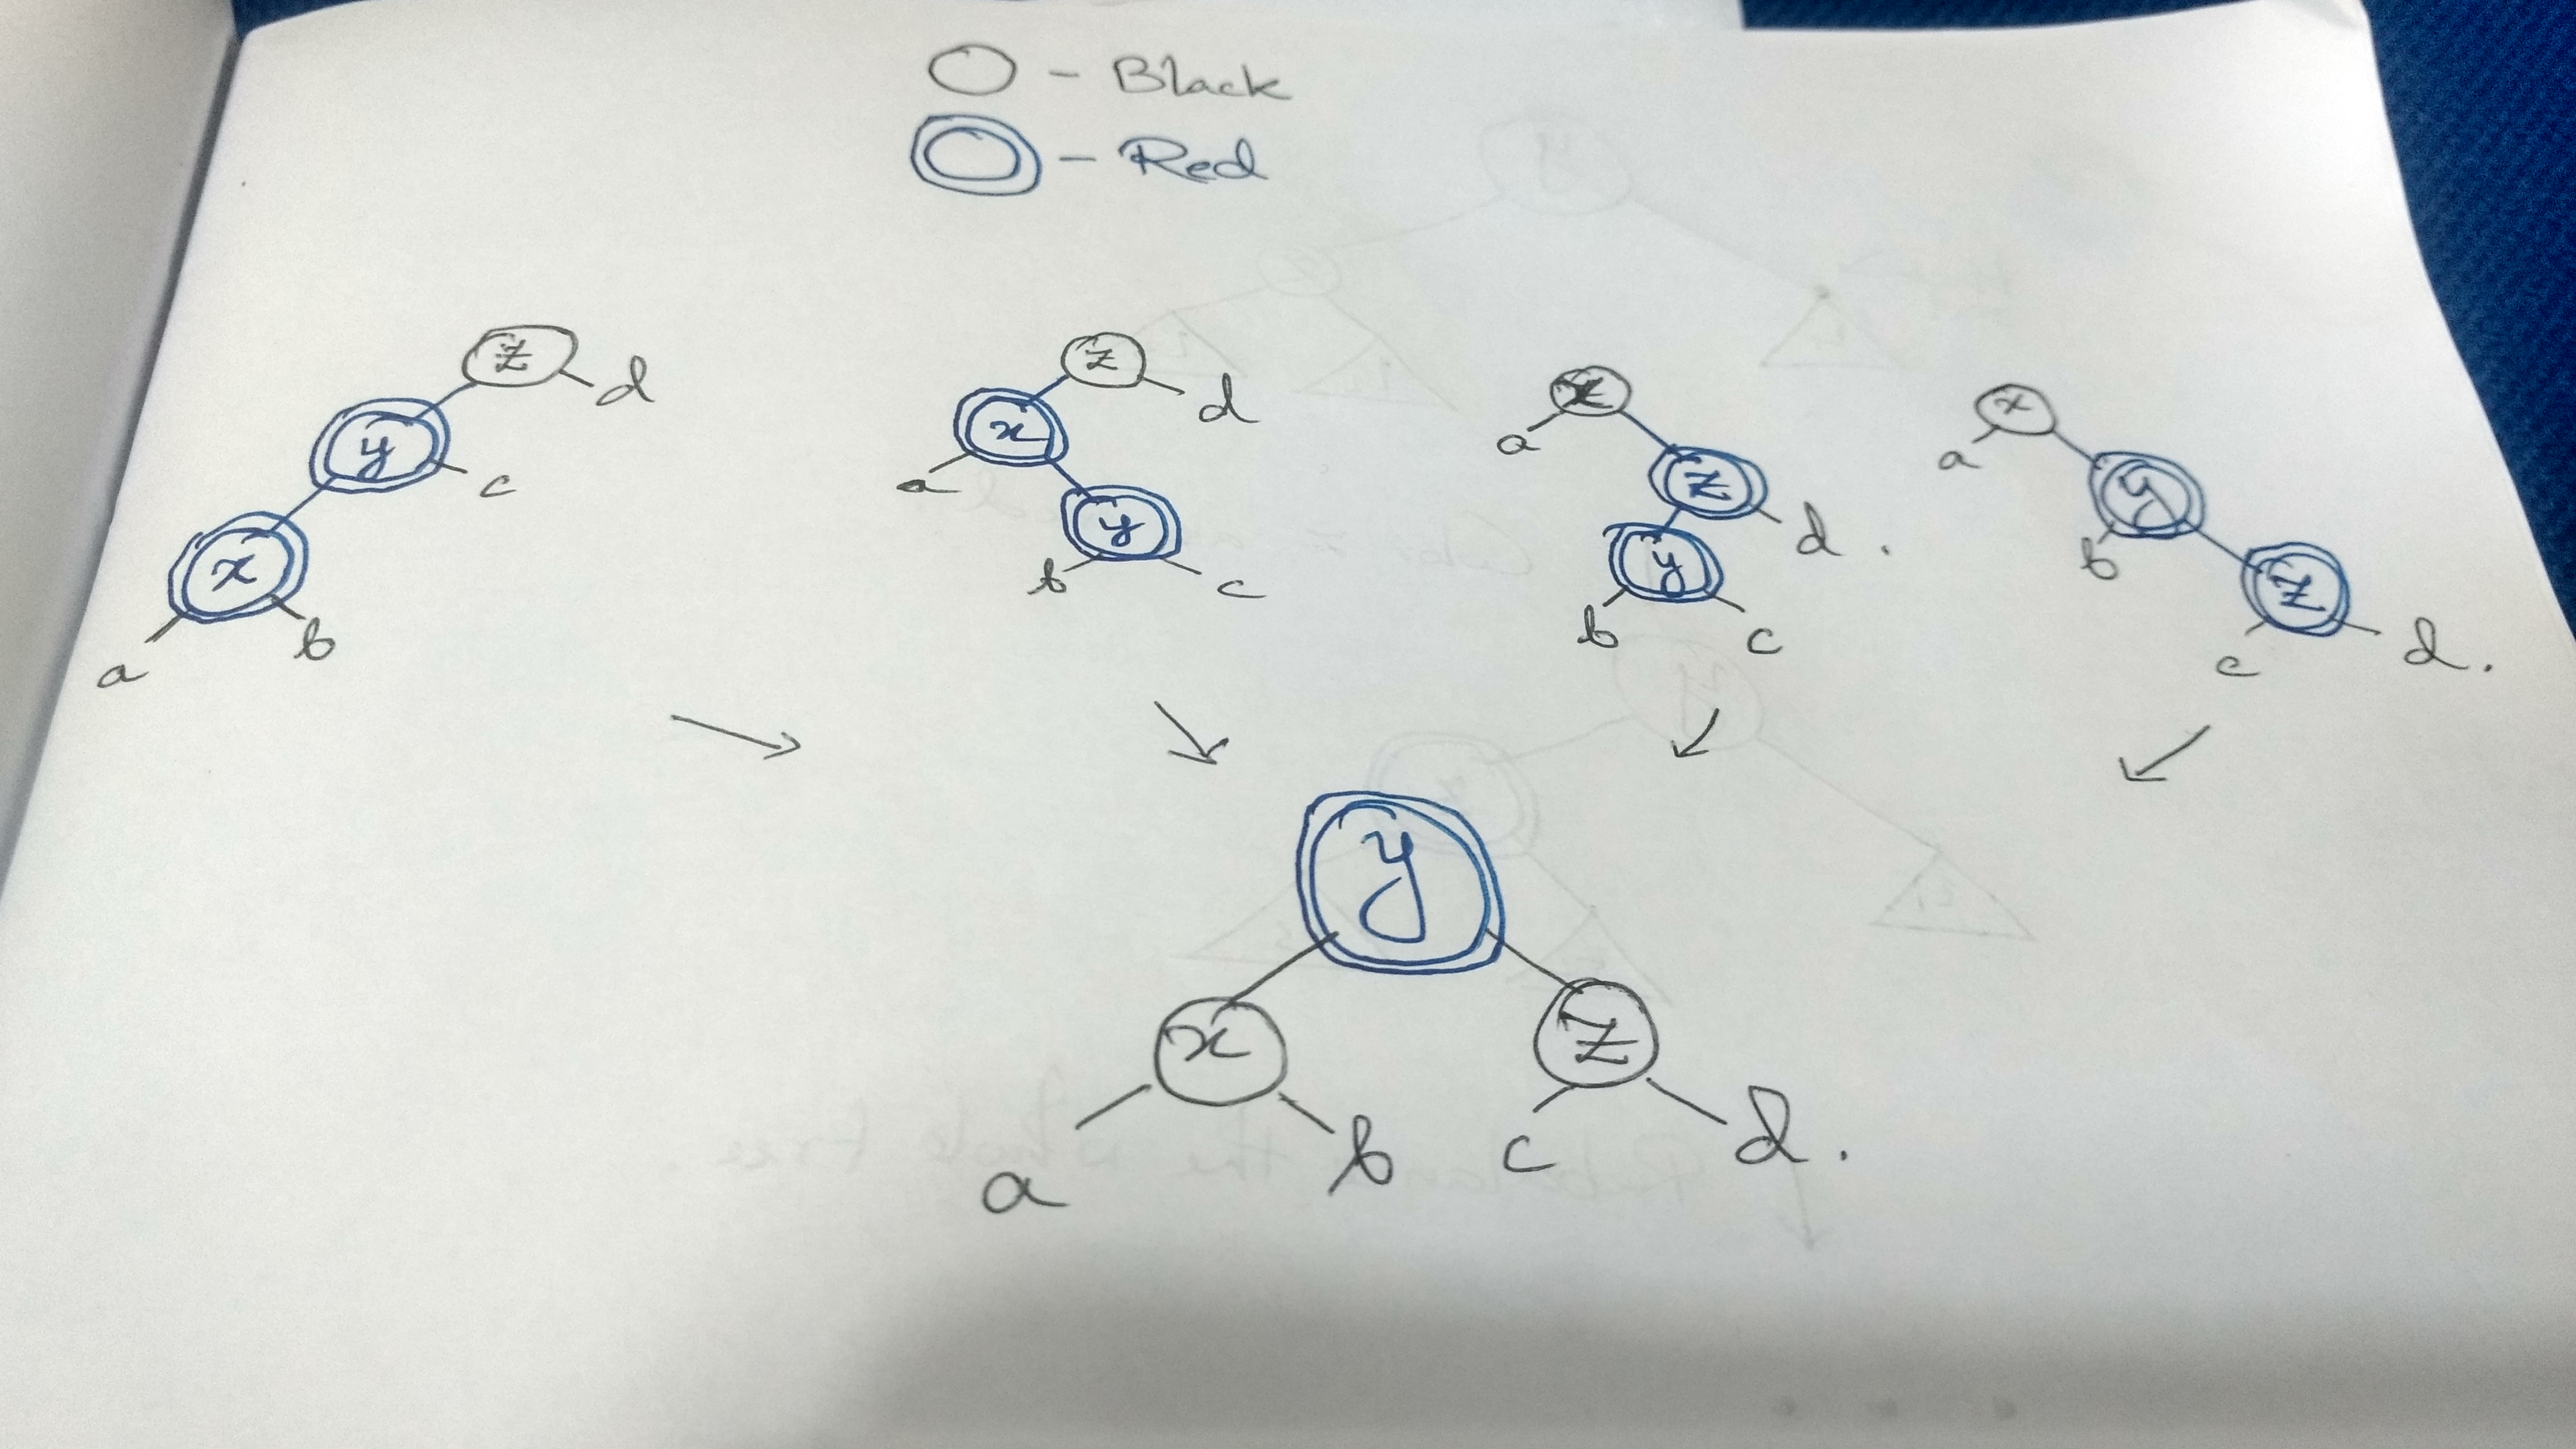 - Black
- Red
z d
y c
x
a b
z d
x
a y
b c
x
a z d .
y
b c
x
a y
b z
c d .
y
x z
a b c d .